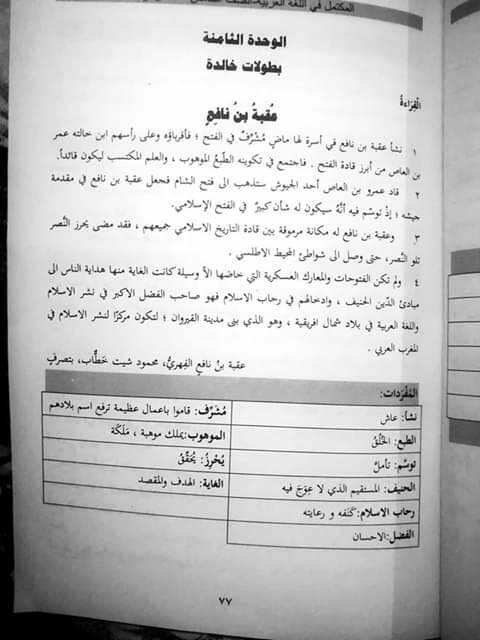 المكتمل في اللغة العربية-الصف
الوحدة الثامنة
بطولات خالدة
القِراءةُ
عُقبةُ بنُ نافعٍ
١ نشأ عقبة بن نافع في أسرة لها ماضٍ مُشْرِّفٌ في الفتح ؛ فأقرباؤه وعلى رأسهم ابن خالته عمر
بن العاص من أبرز قادة الفتح . فاجتمع في تكوينه الطَّبعُ الموهوب ، والعلم المكتسب ليكون قائداً.
٢ قاد عمرو بن العاص أحد الجيوش ستذهب الى فتح الشام فجعل عقبة بن نافع في مقدمة
جيشه ؛ إذْ توسّم فيه أنَّهُ سيكون له شأن كبيرٌ في الفتح الإسلامي.
٣ وعقبة بن نافع له مكانة مرموقة بين قادة التاريخ الاسلامي جميعهم ، فقد مضى يحرز النَّصر
تلو النَّصر، حتى وصل الى شواطئ المحيط الاطلسي .
٤ ولم تكن الفتوحات والمعارك العسكرية التي خاضها الاّ وسيلة كانت الغاية منها هداية الناس الى
مبادئ الدّين الحنيف ، وادخالهم في رحاب الاسلام فهو صاحب الفضل الاكبر في نشر الاسلام
واللغة العربية في بلاد شمال افريقية ، وهو الذي بنى مدينة القيروان ؛ لتكون مركزًا لنشر الاسلام في
المغرب العربي .
عقبة بنُ نافعٍ الفِهريُّ، محمود شيت خطَّاب، بتصرفٍ
المُفْرَدات:
نشأ: عاش
مُشْرِّف: قاموا باعمال عظيمة ترفع اسم بلادهم
الطبع: الخُلُقُ
الموهوب:يملك موهبة ، مَلَكَة
توسّم: تأملَ
يُحْرِزُ: يُحَقِّقُ
الحنيف: المستقيم الذي لا عِوَجَ فيه
الغاية: الهدف والمقصد
رحاب الاسلام:كَنَفه و رعايته
الفضل:الاحسان
٧٧